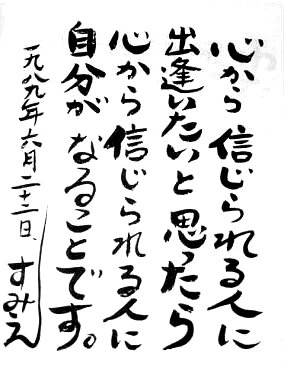 心から信じられる人に
出逢いたいと思ったら
心から信じられる人に
自分がなることです。
一九八九年六月二十二日、すみえ